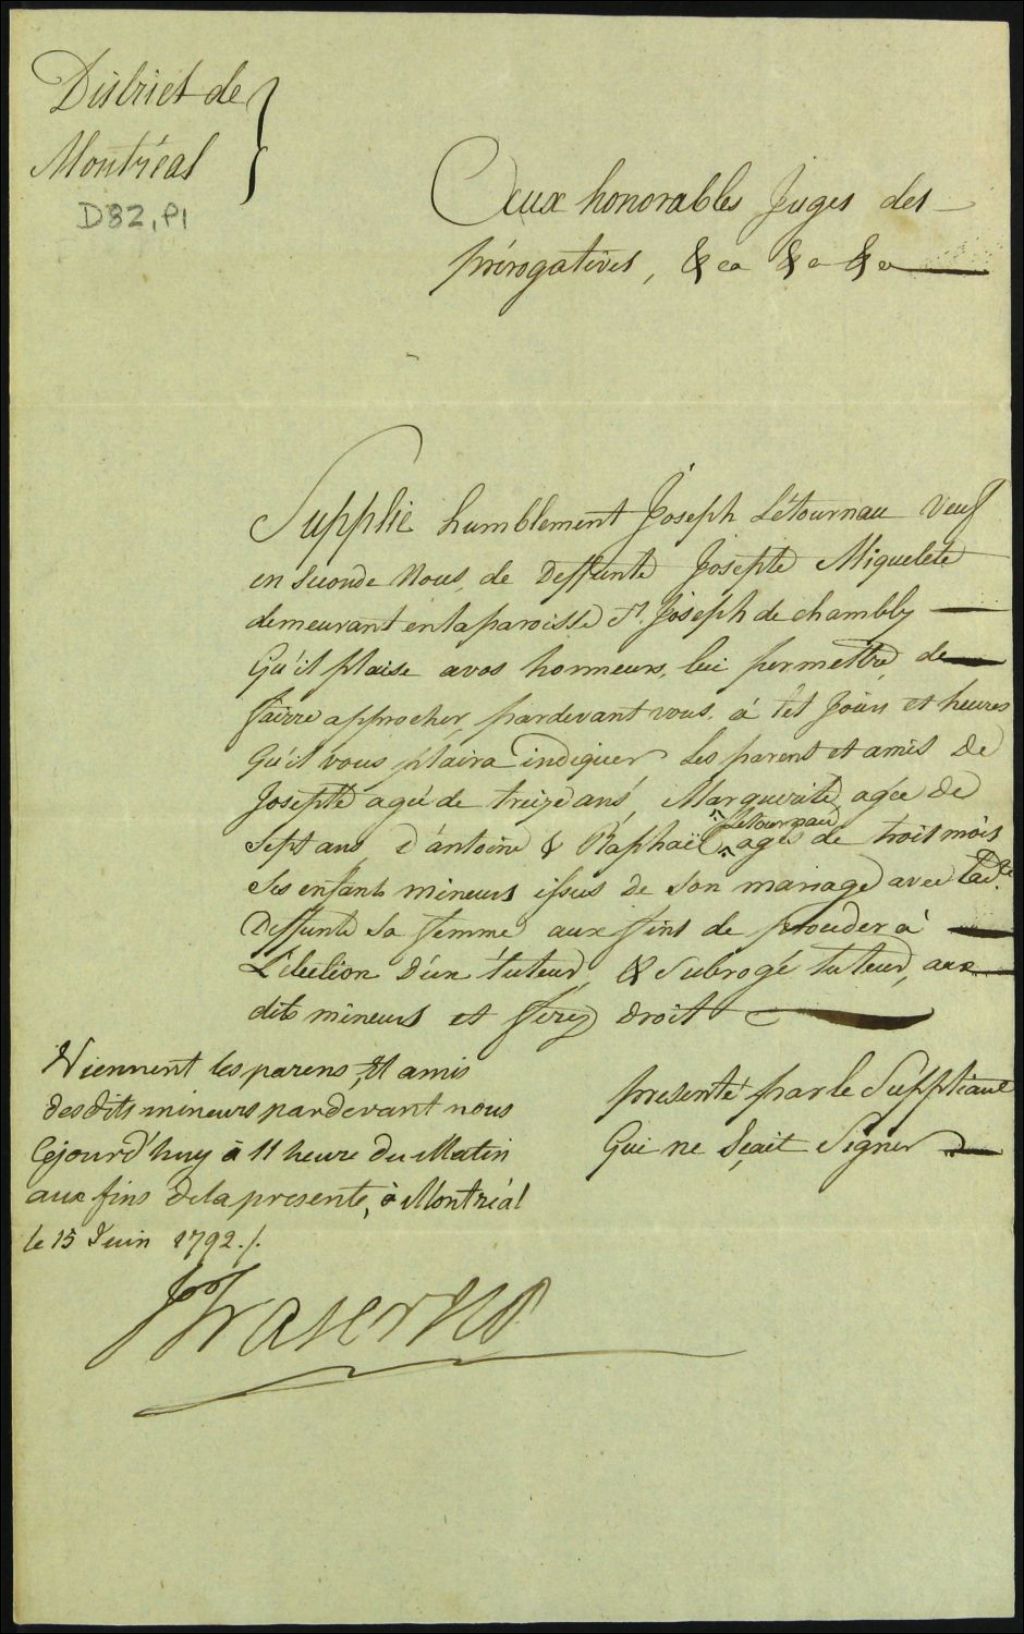 District de
Montréal
D82, P1
Aux honorables Juges des
prérogatives, &ca &a &a
Supplie humblement Joseph Létournau Veuf
en seconde Nous, de Deffunte Josephte Miquelete
demeurant en la paroisse St. Joseph de chambly
Qu'il plaise a vos honneurs, lui permettre, de
fairre approcher, pardevant vous, à tel Jours et heures
Qu'il vous plaira indiquer les parent et amis De
Josephte agée de treize ans, Marguerite agée De
Sept ans, d'antoine & Raphaël Letournau agés de trois mois
Ses enfants mineurs issus de son mariage avec ladte.
Deffunte sa femme aux fins de proceder à
L'élection D'un tuteur, & subrogé tuteur, aux
dits mineurs et ferez droit
presenté par le Suppliant
Qui ne sçait signer
Viennent les parens, et amis
des dits mineurs pardevant nous
Cejourd'huy à 11 heure du Matin
aux fins de la presente, à Montréal
le 15 Juin 1792./.
JFraser